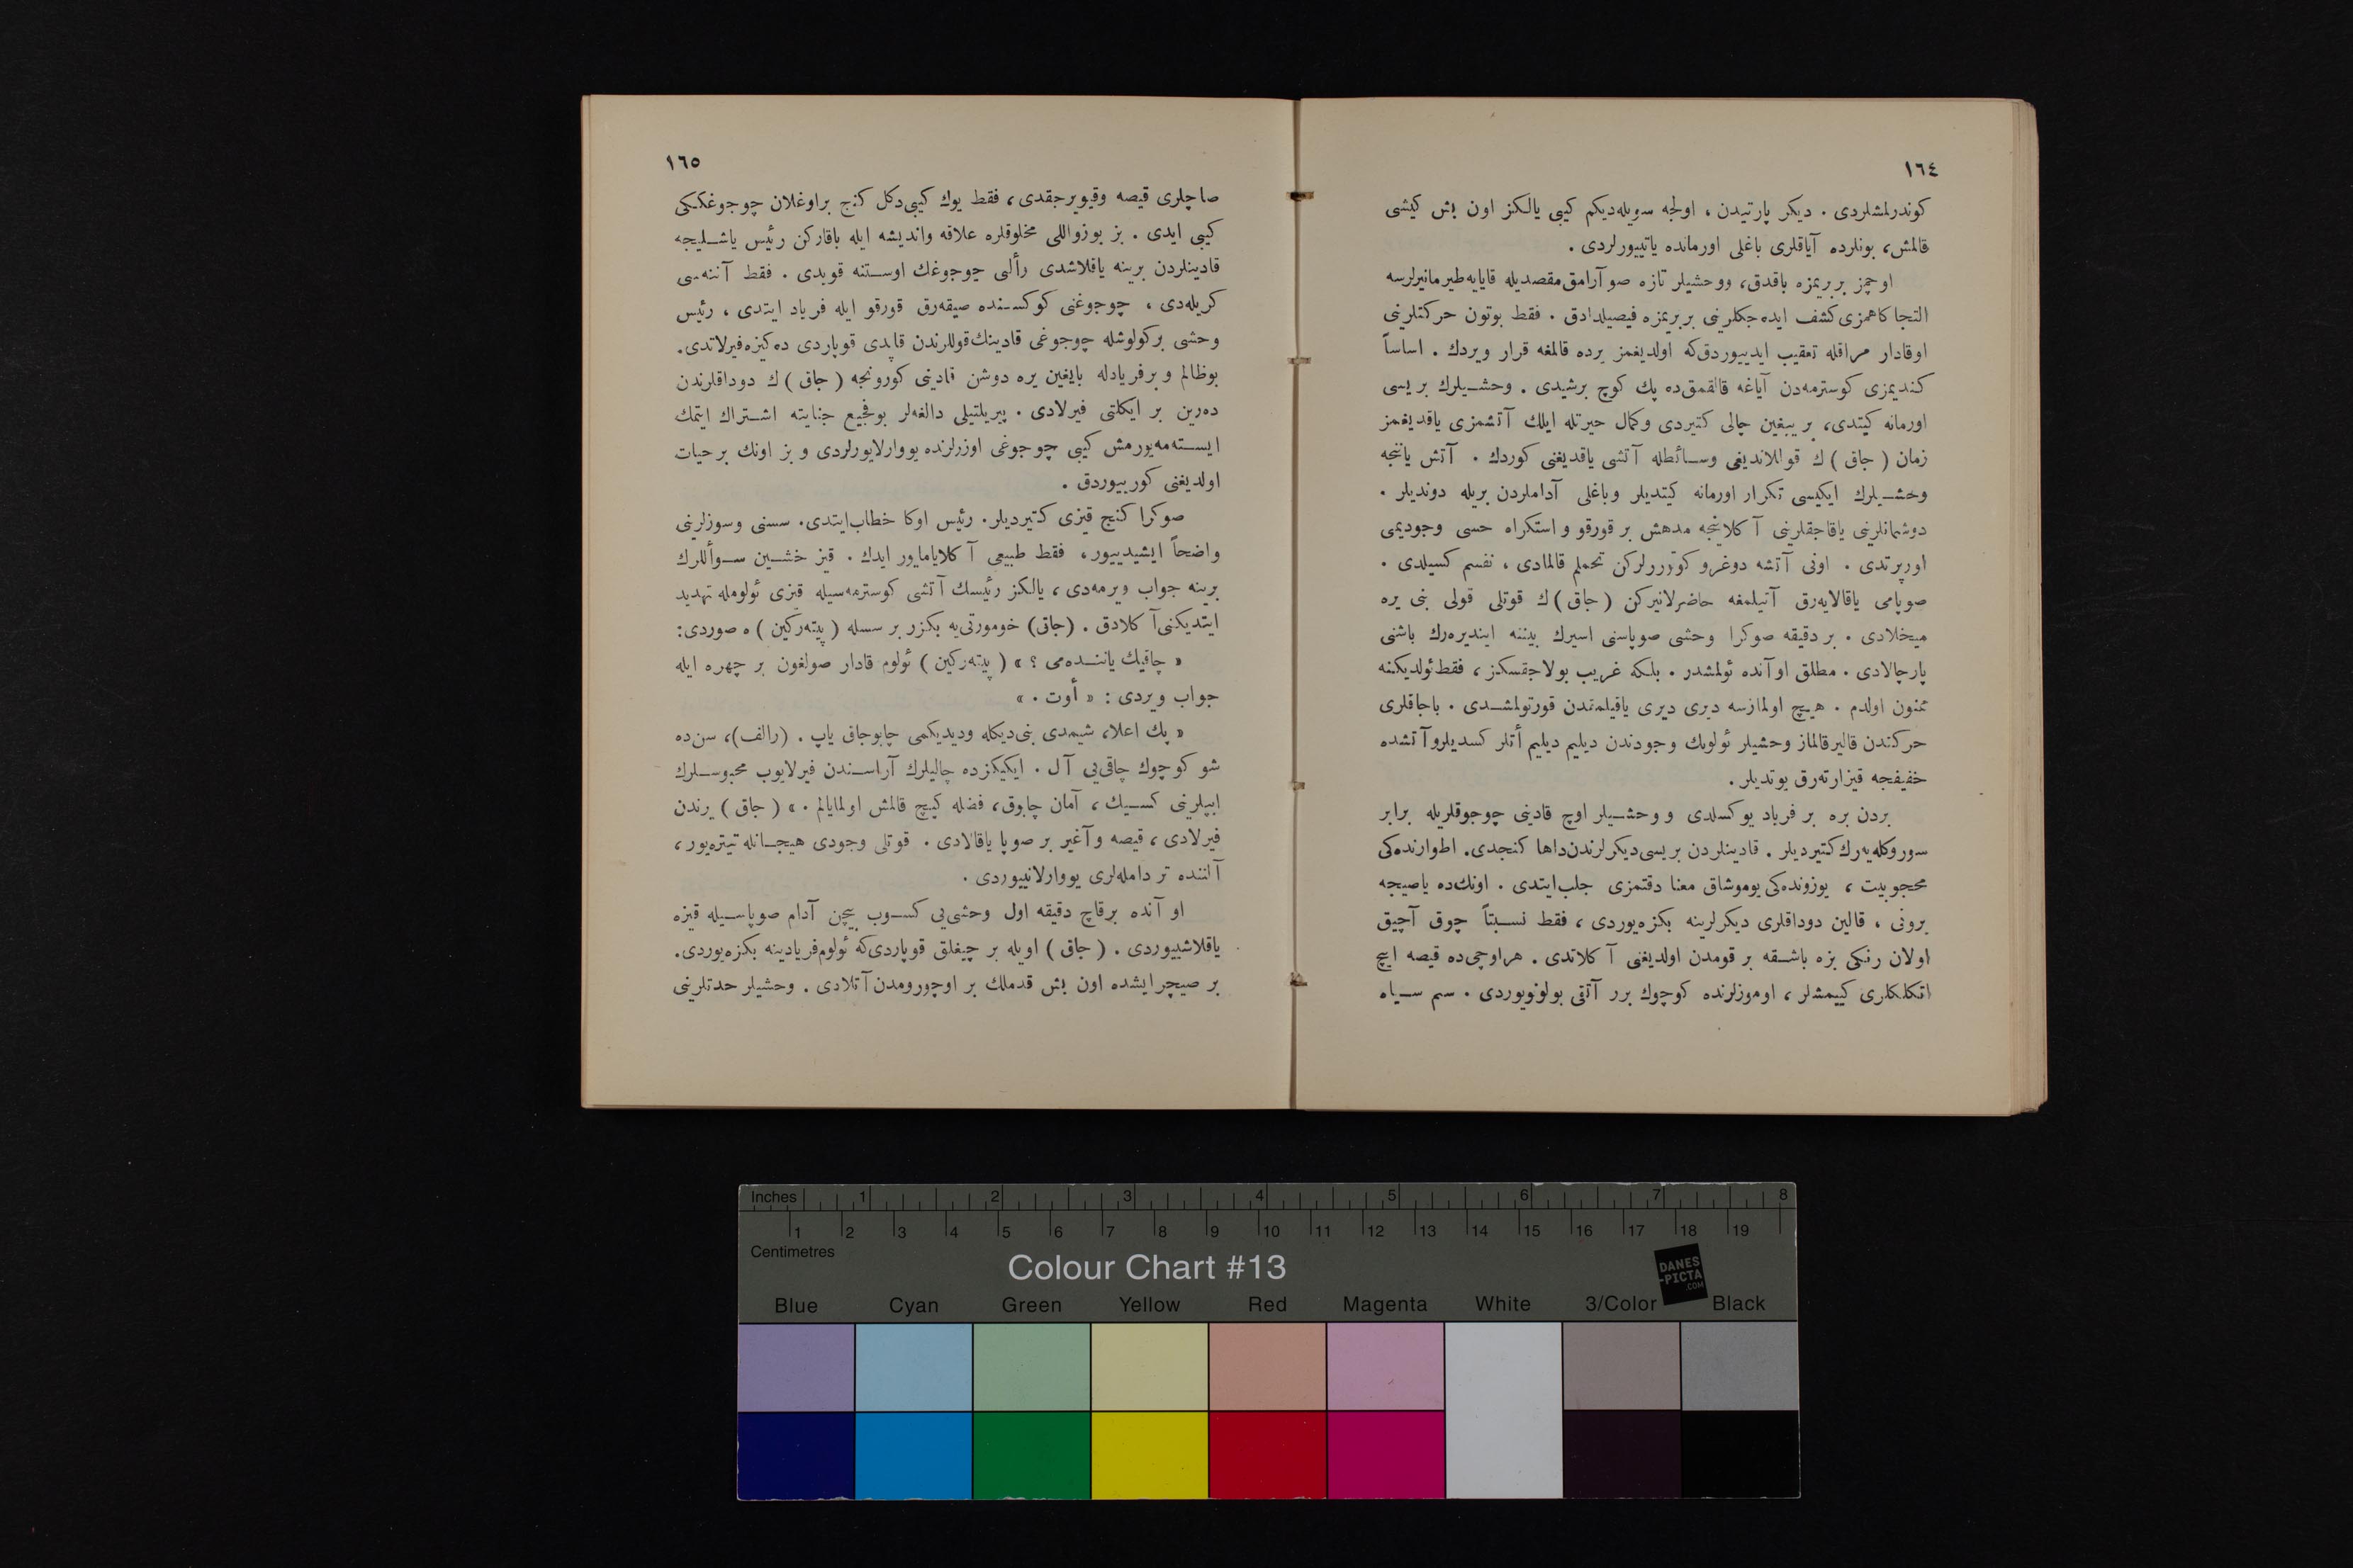 ١٦٤
كوندرلمشلردی . ديكر پارتيدن ، اولجه سويله‌ديكم كيبی يالكز اون بش كيشی
قالمش، بونلرده آياقلری باغلی اورمانده ياتييورلردی .
اوچمز بربريمزه باقدق، ووحشيلر تازه صو آرامق مقصديله قايايه طيرمانيرلرسه
التجا كاهمزی كشف ايده‌جكلرينی بربريمزه فيصيلدادق . فقط بوتون حركتلرينی
اوقادار مراقله تعقيب ايدييوردق‌كه اولديغمز يرده قالمغه قرار ويردك . اساساً
كنديمزی كوسترمه‌دن آياغه قالقمق‌ده پك كوچ برشيدی . وحشيلرك بريسی
اورمانه كيتدی، بر ييغين چالی كتيردی وكمال حيرتله ايلك آتشمزی ياقديغمز
زمان ( جاق ) ك قوللانديغی وسائطله آتشی ياقديغنی كوردك . آتش يانجه
وحشيلرك ايكيسی تكرار اورمانه كيتديلر وباغلی آداملردن بريله دونديلر .
دوشمانلرينی ياقاجقلرينی آ كلاينجه مدهش بر قورقو و استكراه حسی وجوديمی
اورپرتدی . اونی آتشه دوغرو كوتوررلركن تحملم قالمادی ، نفسم كسيلدی .
صوپامی ياقالايه‌رق آتيلمغه حاضرلانيركن ( جاق ) ك قوتلی قولی بنی يره
ميخلادی . بر دقيقه صوكرا وحشی صوپاسنی اسيرك بيننه اينديره‌رك باشنی
پارچالادی . مطلق اوآنده ئولمشدر . بلكه غريب بولاجقسكز ، فقط ئولديكنه
ممنون اولدم . هيچ اولمازسه ديری ديری ياقيلمقدن قورتولمشدی . باجاقلری
حركتدن قالير قالماز وحشيلر ئولونك وجودندن ديليم ديليم أتلر كسديلر و آتشده
خفيفجه قيزارته‌رق يوتديلر .
بردن بره بر فرياد يوكسلدی و وحشيلر اوچ قادينی چوجوقلريله برابر
سوروكله‌يه‌رك كتيرديلر . قادينلردن بريسی ديكرلرندن داها كنجدی. اطوارنده‌كی
محجوبيت ، يوزونده‌كی يوموشاق معنا دقتمزی جلب ايتدی . اونك‌ده ياصيجه
برونی ، قالين دوداقلری ديكرلرينه بكزه‌يوردی ، فقط نسبتاً چوق آچيق
اولان رنكی بزه باشقه بر قومدن اولديغنی آ كلاتدی . هراوچی‌ده قيصه ايچ
اتكلكلری كييمشلر ، اوموزلرنده كوچوك برر آتقی بولونويوردی . سم سياه
١٦٥
صاچلری قيصه وقيويرجقدی ، فقط يوك كيبی دكل كنج براوغلان چوجوغككی
كيبی ايدی . بز بوزواللی مخلوقلره علاقه وانديشه ايله باقاركن رئيس ياشليجه
قادينلردن برينه ياقلاشدی وألی چوجوغك اوستنه قويدی . فقط آننه‌سی
كريله‌دی ، چوجوغنی كوكسنده صيقه‌رق قورقو ايله فرياد ايتدی ، رئيس
وحشی بركولوشله چوجوغی قادينك قوللرندن قاپدی قوپاردی ده‌كيزه فيرلاتدی.
بوظالم و برفريادله بايغين يره دوشن قادينی كورونجه ( جاق ) ك دوداقلرندن
ده‌رين بر ايكلتی فيرلادی . پيريلتيلی دالغه‌لر بوفجيع جنايته اشتراك ايتمك
ايسته‌مه‌يورمش كيبی چوجوغی اوزرلرنده يووارلايورلردی و بز اونك بر حيات
اولديغنی كورييوردق .
صوكرا كنج قيزی كتيرديلر. رئيس اوكا خطاب‌ايتدی. سسنی وسوزلرينی
واضحاً ايشيدييور، فقط طبيعی آ كلاياماپور ايدك . قيز خشين سوأللرك
برينه جواب ويرمه‌دی ، يالكز رئيسك آتشی كوسترمه‌سيله قيزی ئولومله تهديد
ايتديكنی آ كلادق . (جاق) خومورتی‌يه بكزر بر سسله ( پيته‌ركين ) ه صوردی:
« چاقيك ياننده‌می ؟ » ( پيته‌ركين ) ئولوم قادار صولغون بر چهره ايله
جواب ويردی : « أوت . »
« پك اعلا، شيمدی بنی ديكله وديديكمی چابوجاق ياپ . (رالف)، سن‌ده
شو كوچوك چاقی‌يی آل . ايكيكزده چاليلرك آراسندن فيرلايوب محبوسلرك
ايپلرينی كسيك ، آمان چابوق، فضله كيچ قالمش اولمايالم . » ( جاق ) يرندن
فيرلادی ، قيصه و آغير بر صوپا ياقالادی . قوتلی وجودی هيجانله تيتره‌يور ،
آلننده تر دامله‌لری يووارلانييوردی .
او آنده برقاچ دقيقه اول وحشی‌يی كسوب بيچن آدام صوپاسيله قيزه
ياقلاشييوردی . ( جاق ) اويله بر چيغلق قوپاردی‌كه ئولوم‌فريادينه بكزه‌يوردی.
بر صيچرايشده اون بش قدملك بر اوچورومدن آتلادی . وحشيلر حدتلرينی
Inches 1 2 3 4 5 6 7 8
1 2 3 4 5 6 7 8 9 10 11 12 13 14 15 16 17 18 19
Centimetres
Colour Chart #13
DANES
-PICTA
.COM
Blue Cyan Green Yellow Red Magenta White 3/Color Black